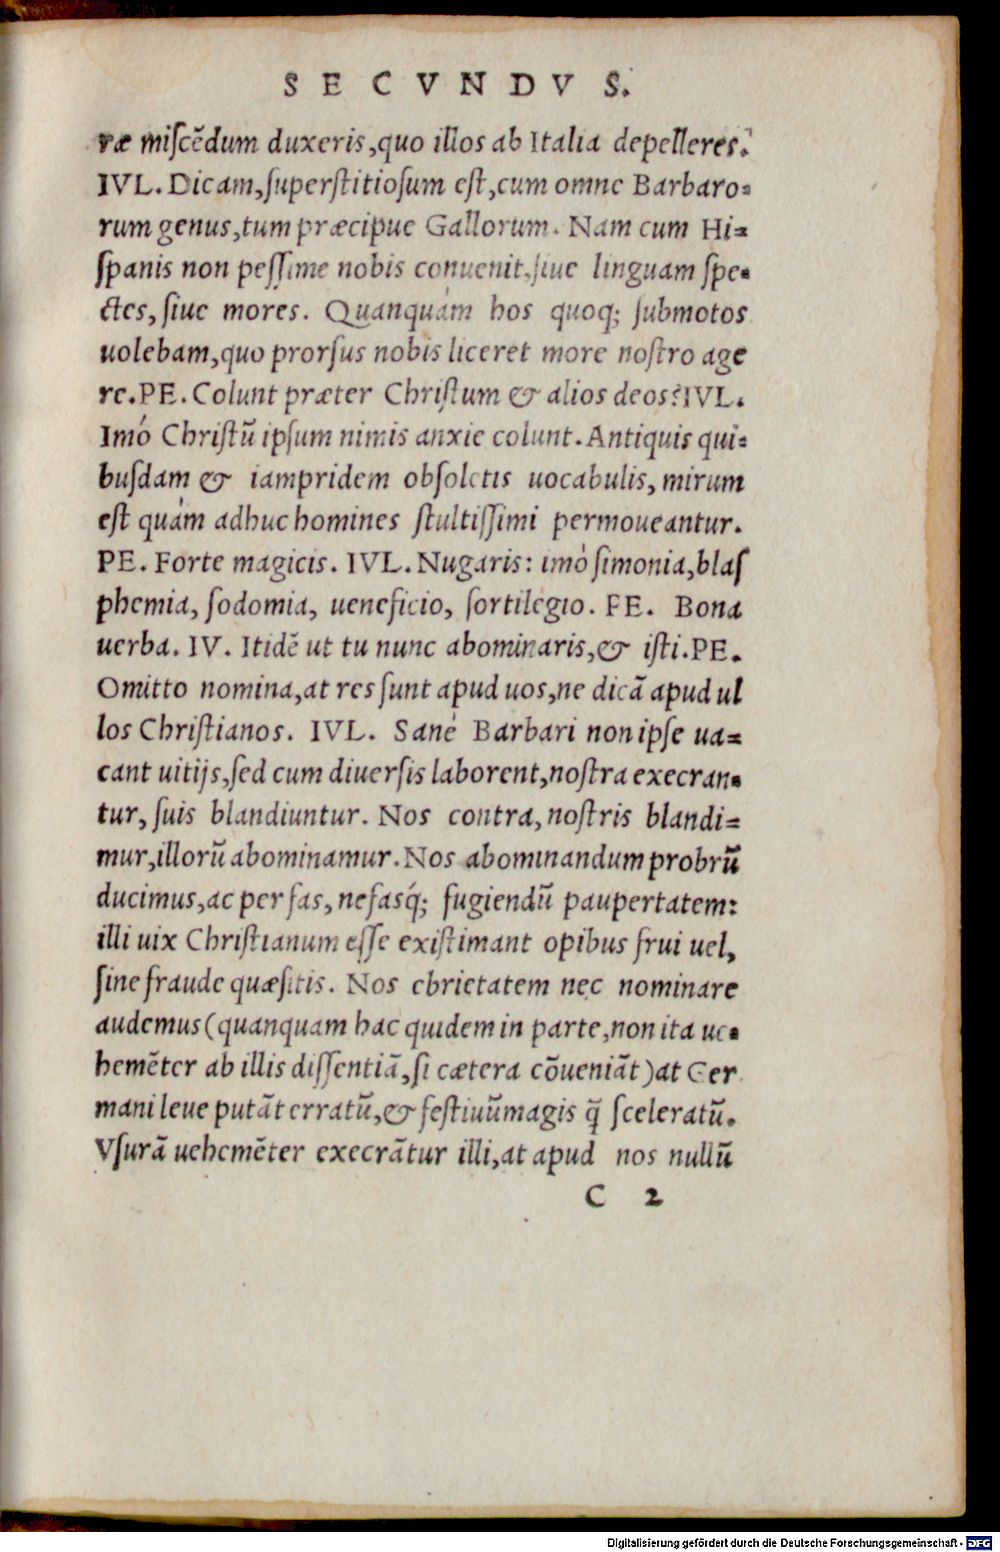 SECVNDVS.
ræ miſcẽdum duxeris,quo illos ab Italia depelleres?
IVL.Dicam,ſuperſtitioſum eſt,cum omne Barbaro-
rum genus,tum præcipue Gallorum. Nam cum Hi-
ſpanis non peſſime nobis conuenit,ſiue linguam ſpe-
ctes, ſiue mores. Quanquám hos quoq; ſubmotos
uolebam,quo prorſus nobis liceret more noſtro age
re.PE. Colunt præter Chriſtum & alios deos?IVL.
Imó Chriſtũ ipſum nimis anxie colunt.Antiquis qui-
buſdam & iampridem obſoletis uocabulis, mirum
eſt quám adhuc homines ſtultiſſimi permoueantur.
PE. Forte magicis. IVL. Nugaris: imó ſimonia,blaſ
phemia, ſodomia, ueneficio, ſortilegio. PE. Bona
uerba. IV. Itidẽ ut tu nunc abominaris,& iſti.PE.
Omitto nomina,at res ſunt apud uos,ne dicã apud ul
los Chriſtianos. IVL. Sané Barbari non ipſe ua-
cant uitijs,ſed cum diuerſis laborent,noſtra execran-
tur, ſuis blandiuntur. Nos contra, noſtris blandi-
mur,illorũ abominamur.Nos abominandum probrũ
ducimus,ac per fas, nefasq́; fugiendũ paupertatem:
illi uix Chriſtianum eſſe exiſtimant opibus frui uel,
ſine fraude quæſitis. Nos ebrietatem nec nominare
audemus(quanquam hac quidem in parte,non ita ue-
hemẽter ab illis diſſentiã,ſi cætera cõueniãt)at Ger
mani leue putãt erratũ,& feſtiuũmagis q̃ ſceleratũ.
Vſurã uehemẽter execrãtur illi,at apud nos nullũ
C 2
Digitalisierung gefördert durch die Deutsche Forschungsgemeinschaft - DFG